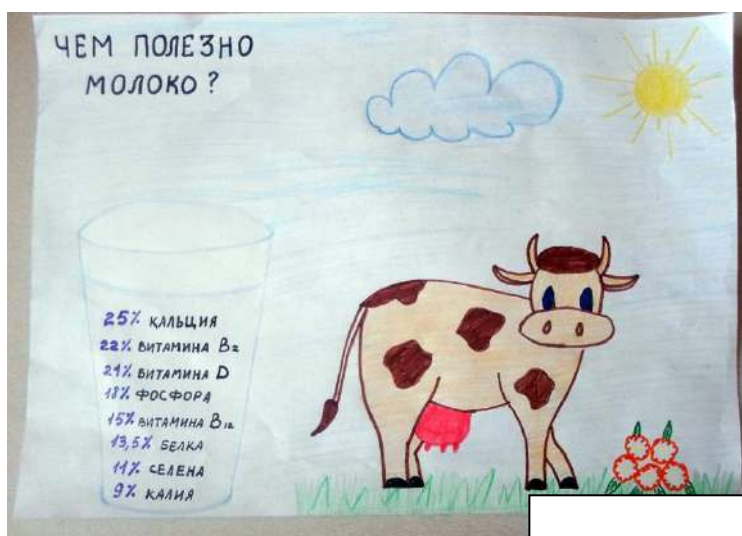 ЧЕМ ПОЛЕЗНО
МОЛОКО?
25% КАЛЬЦИЯ
22% ВИТАМИНА B₂
21% ВИТАМИНА D
18% ФОСФОРА
15% ВИТАМИНА B₁₂
13,5% БЕЛКА
11% СЕЛЕНА
9% КАЛИЯ